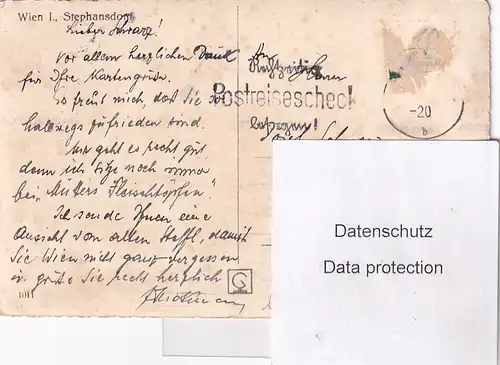 Wien I., Stephansdom
Lieber Schwarz!
Vor allem herzlichen Dank
für Ihre Kartengrüsse.
Es freut mich, daß Sie so
halbwegs zufrieden sind.
Mir geht es recht gut,
denn ich sitze noch immer
bei "Mutters Fleischtöpfen".
Ich sende Ihnen eine
Ansicht von alten Steffl, damit
Sie Wien nicht ganz vergessen
u. grüße Sie recht herzlich
1011
G
An
Herrn
Rechtzeitig
Postreisescheck
besorgen!
-20
b
Datenschutz
Data protection